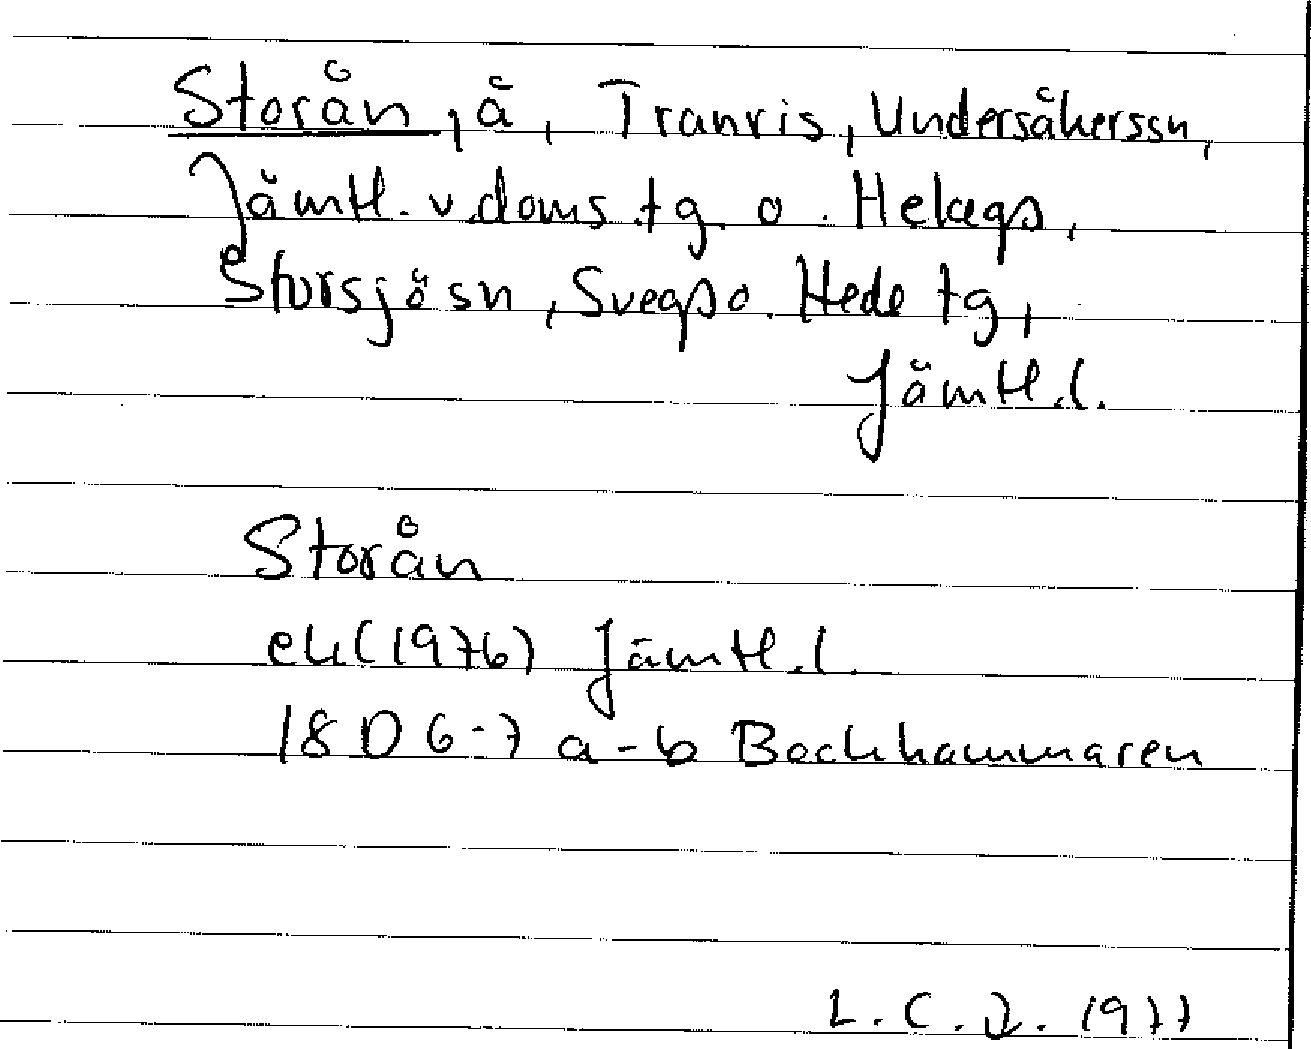 Storån, å, Tranris, Undersåkerssn,
Jämtl. v. doms. tg o. Helags,
Storsjösn, Svegs o. Hede tg,
Jämtl. l.
Storån
ek (1976) Jämtl. l.
18 D 6-7 a-b Bockhammaren
L. C. 1977